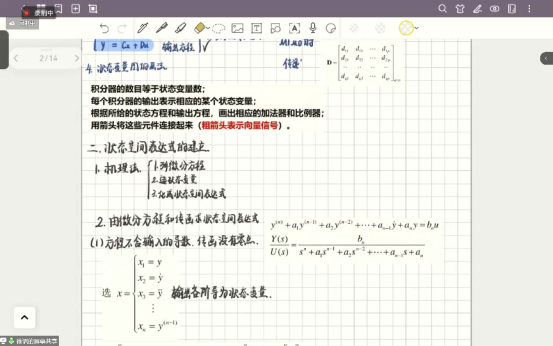 2/14
y = Cx + Du 输出方程
D=
d₁₁ d₁₂ ⋯ d₁ₚ
d₂₁ d₂₂ ⋯ d₂ₚ
4. 状态变量图的画法
积分器的数目等于状态变量数；
每个积分器的输出表示相应的某个状态变量；
根据所给的状态方程和输出方程，画出相应的加法器和比例器；
用箭头将这些元件连接起来（粗箭头表示向量信号）。
二. 状态空间表达式的建立
1. 机理法
1. 列微分方程
2. 选状态变量
3. 化成状态空间表达式
2. 由微分方程和传函求状态空间表达式
y⁽ⁿ⁾+a₁y⁽ⁿ⁻¹⁾+a₂y⁽ⁿ⁻²⁾+⋯+aₙ₋₁ẏ+aₙy=bₙu
(1) 方程不含输入的导数，传函没有零点.
Y(s)/U(s) = bₙ/(sⁿ+a₁sⁿ⁻¹+a₂sⁿ⁻²+⋯+aₙ₋₁s+aₙ)
x₁ = y
x₂ = ẏ
选 x = x₃ = ÿ 输出各阶导为状态变量.
⋮
xₙ = y⁽ⁿ⁻¹⁾